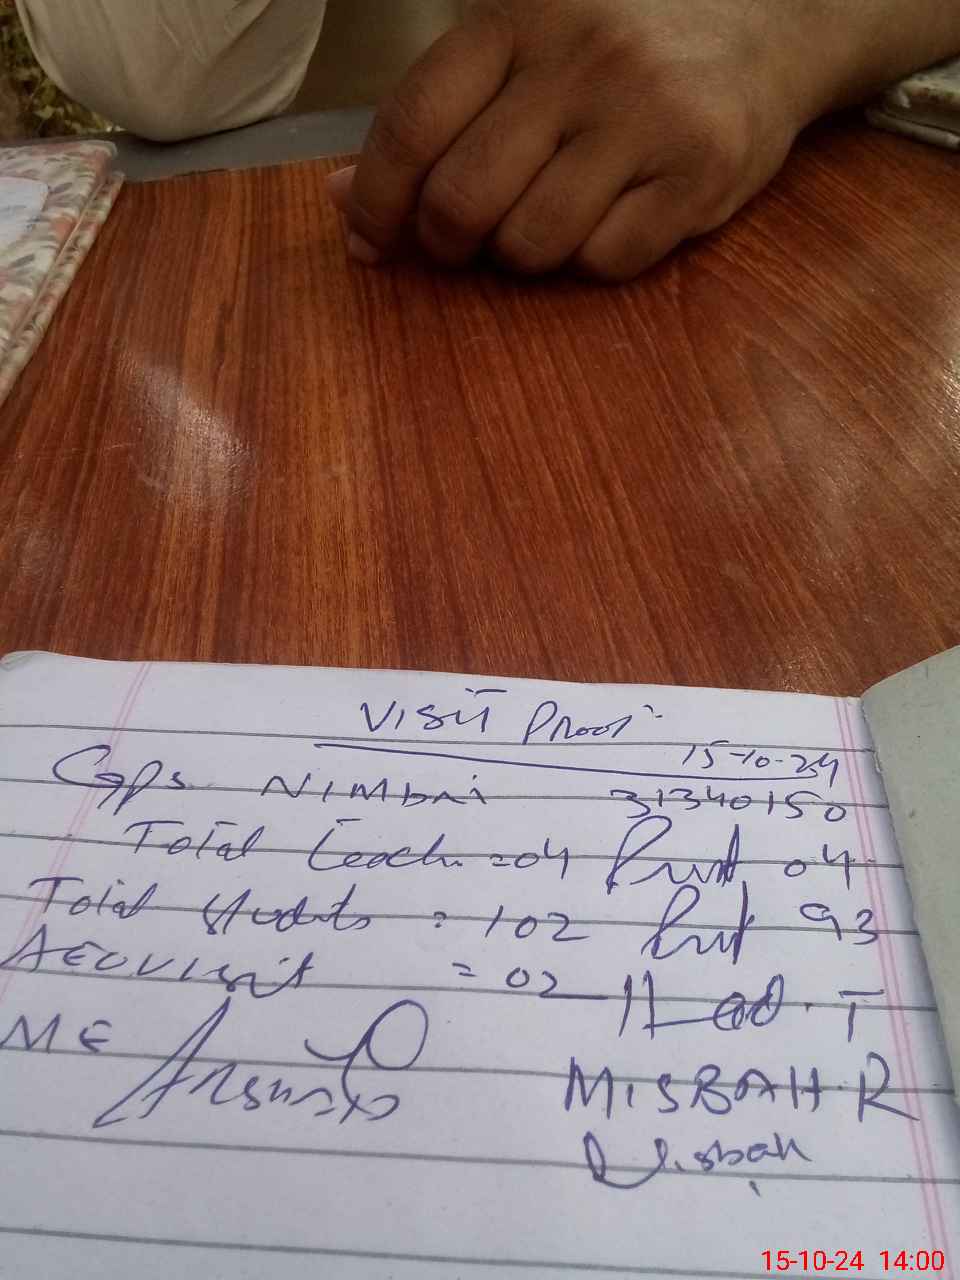 Visit Proof
15-10-24
Ggps Nimbri 31340150
Total Teach. = 04 Prsnt 04
Total Students = 102 Prsnt 93
AEO Visit = 02 Head. T
ME
MISBAH. R
Misbah
15-10-24 14:00